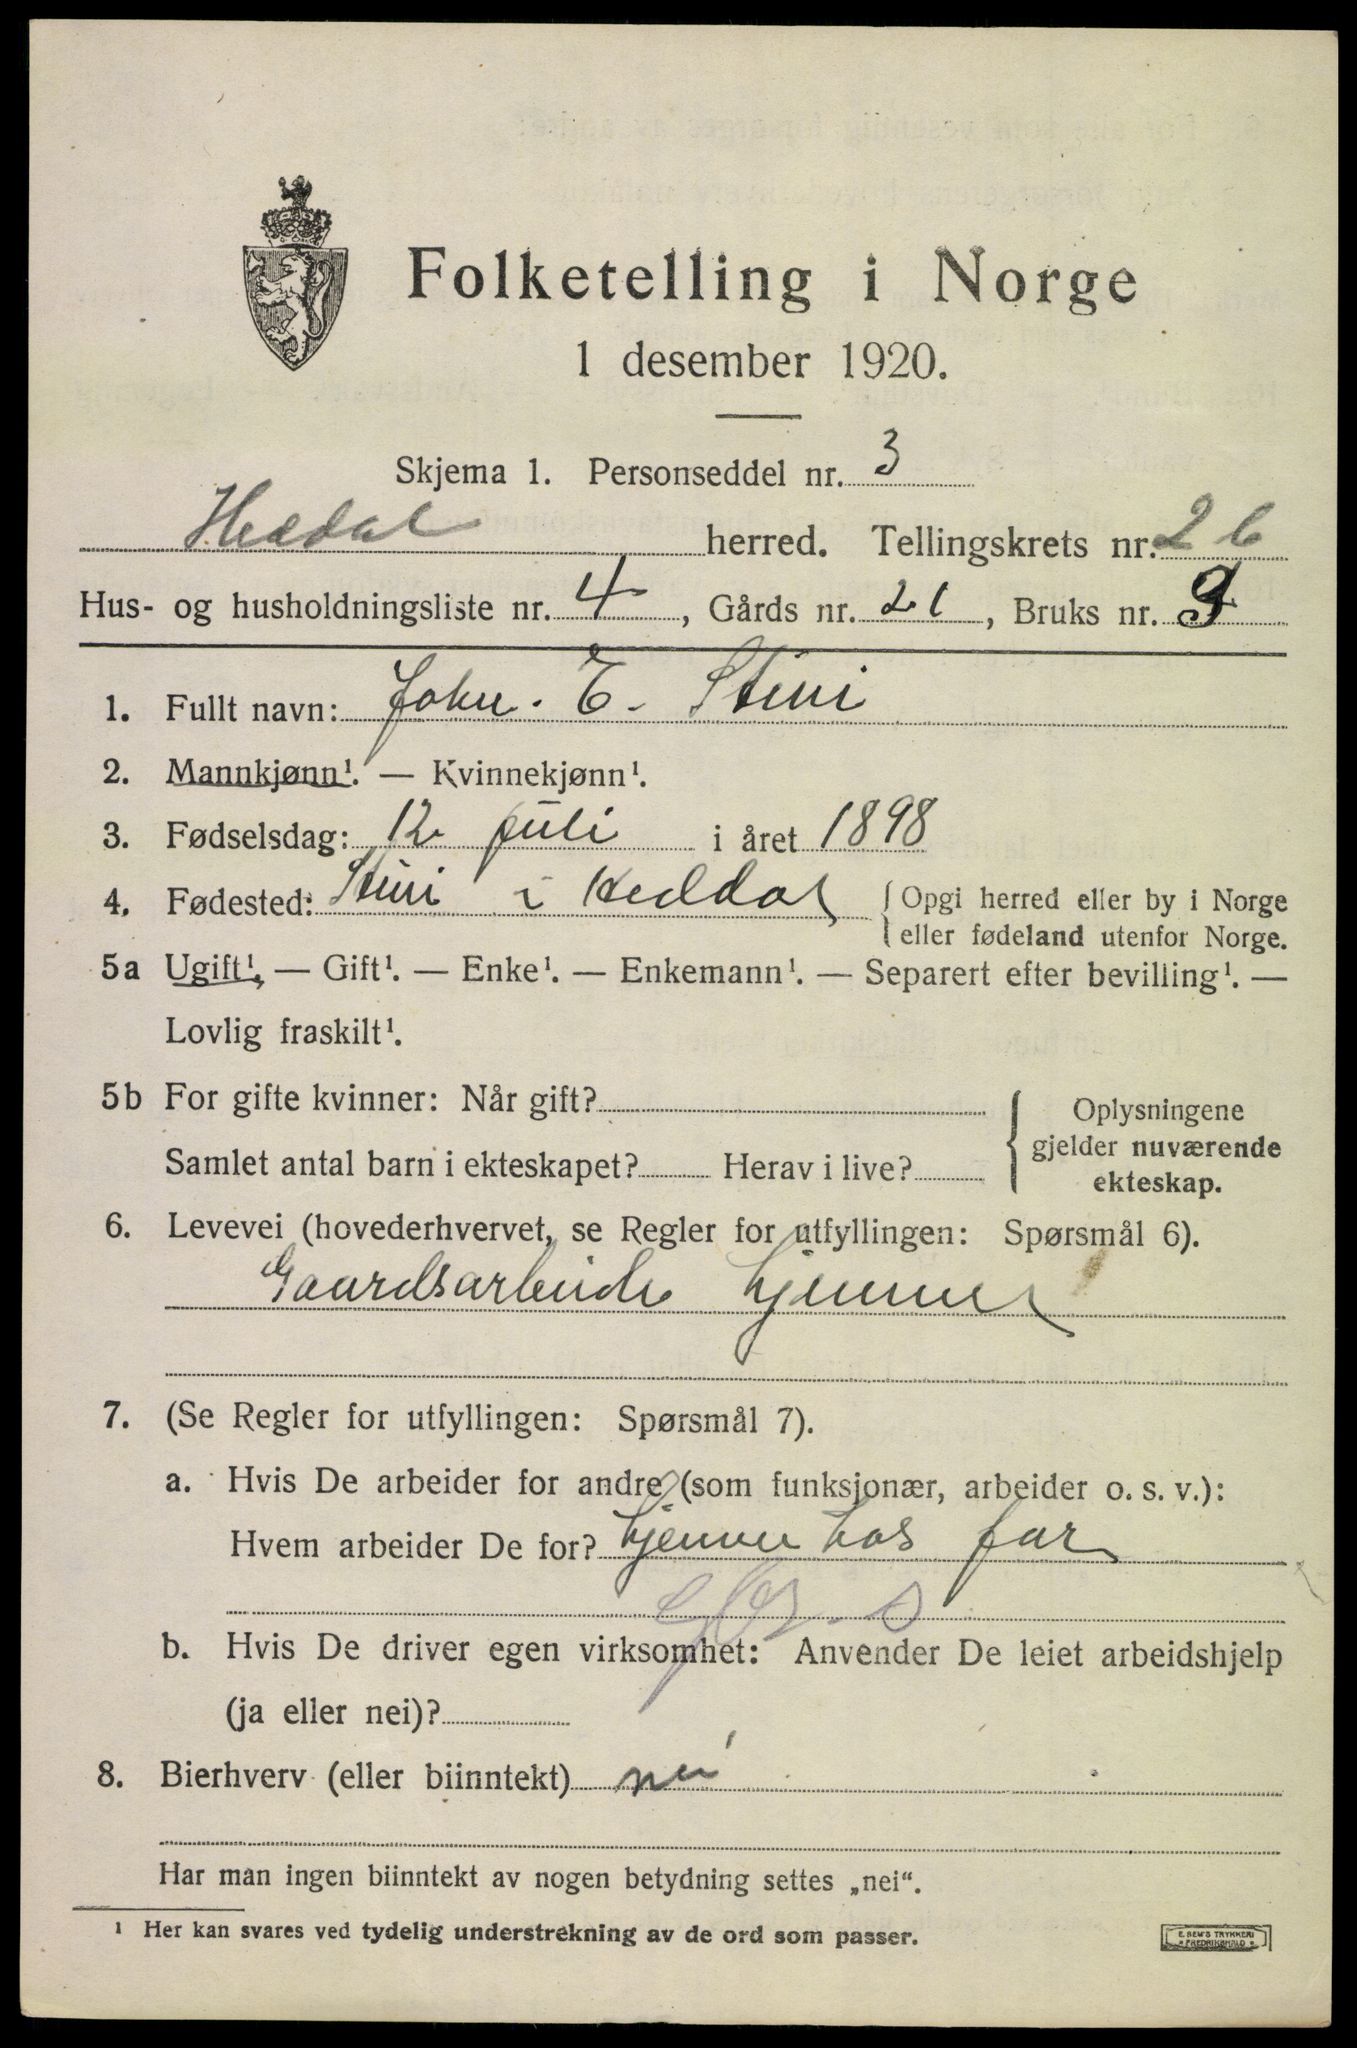 Folketelling i Norge
1 desember 1920.
Skjema 1. Personseddel nr. 3
Heddal herred. Tellingskrets nr. 2 b
Hus- og husholdningsliste nr. 4, Gårds nr. 21, Bruks nr. 9
1. Fullt navn: John. E. Stivi
2. Mannkjønn¹. — Kvinnekjønn¹.
3. Fødselsdag: 12 juli i året 1898
4. Fødested: Stivi i Heddal { Opgi herred eller by i Norge
eller fødeland utenfor Norge.
5a Ugift¹, — Gift¹. — Enke¹. — Enkemann¹. — Separert efter bevilling¹. —
Lovlig fraskilt¹.
5b For gifte kvinner: Når gift?
Samlet antal barn i ekteskapet? Herav i live?
{ Oplysningene
gjelder nuværende
ekteskap.
6. Levevei (hovederhvervet, se Regler for utfyllingen: Spørsmål 6).
Gaardsarbeide hjemme
7. (Se Regler for utfyllingen: Spørsmål 7).
a. Hvis De arbeider for andre (som funksjonær, arbeider o. s. v.):
Hvem arbeider De for? hjemme hos far
b. Hvis De driver egen virksomhet: Anvender De leiet arbeidshjelp
(ja eller nei)?
8. Bierhverv (eller biinntekt) nei
Har man ingen biinntekt av nogen betydning settes „nei“.
¹ Her kan svares ved tydelig understrekning av de ord som passer.
E. SEM'S TRYKKERI
* FREDRIKSHALD *